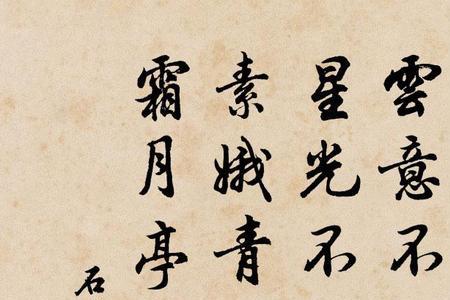 雲意不
星光不
素娥青
霜月亭
石